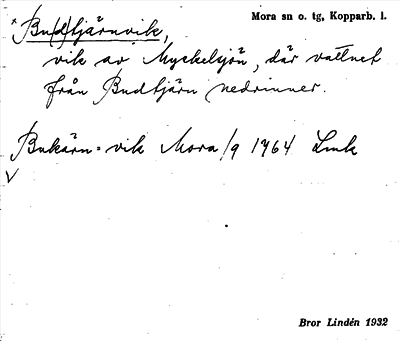 * Bu(d)tjärnvik, Mora sn o. tg, Kopparb. l.
vik av Myckelsjön, där vattnet
från Budtjärn nedrinner.
Bukärn=vik Mora /9 1764 Lmk
V
Bror Lindén 1932